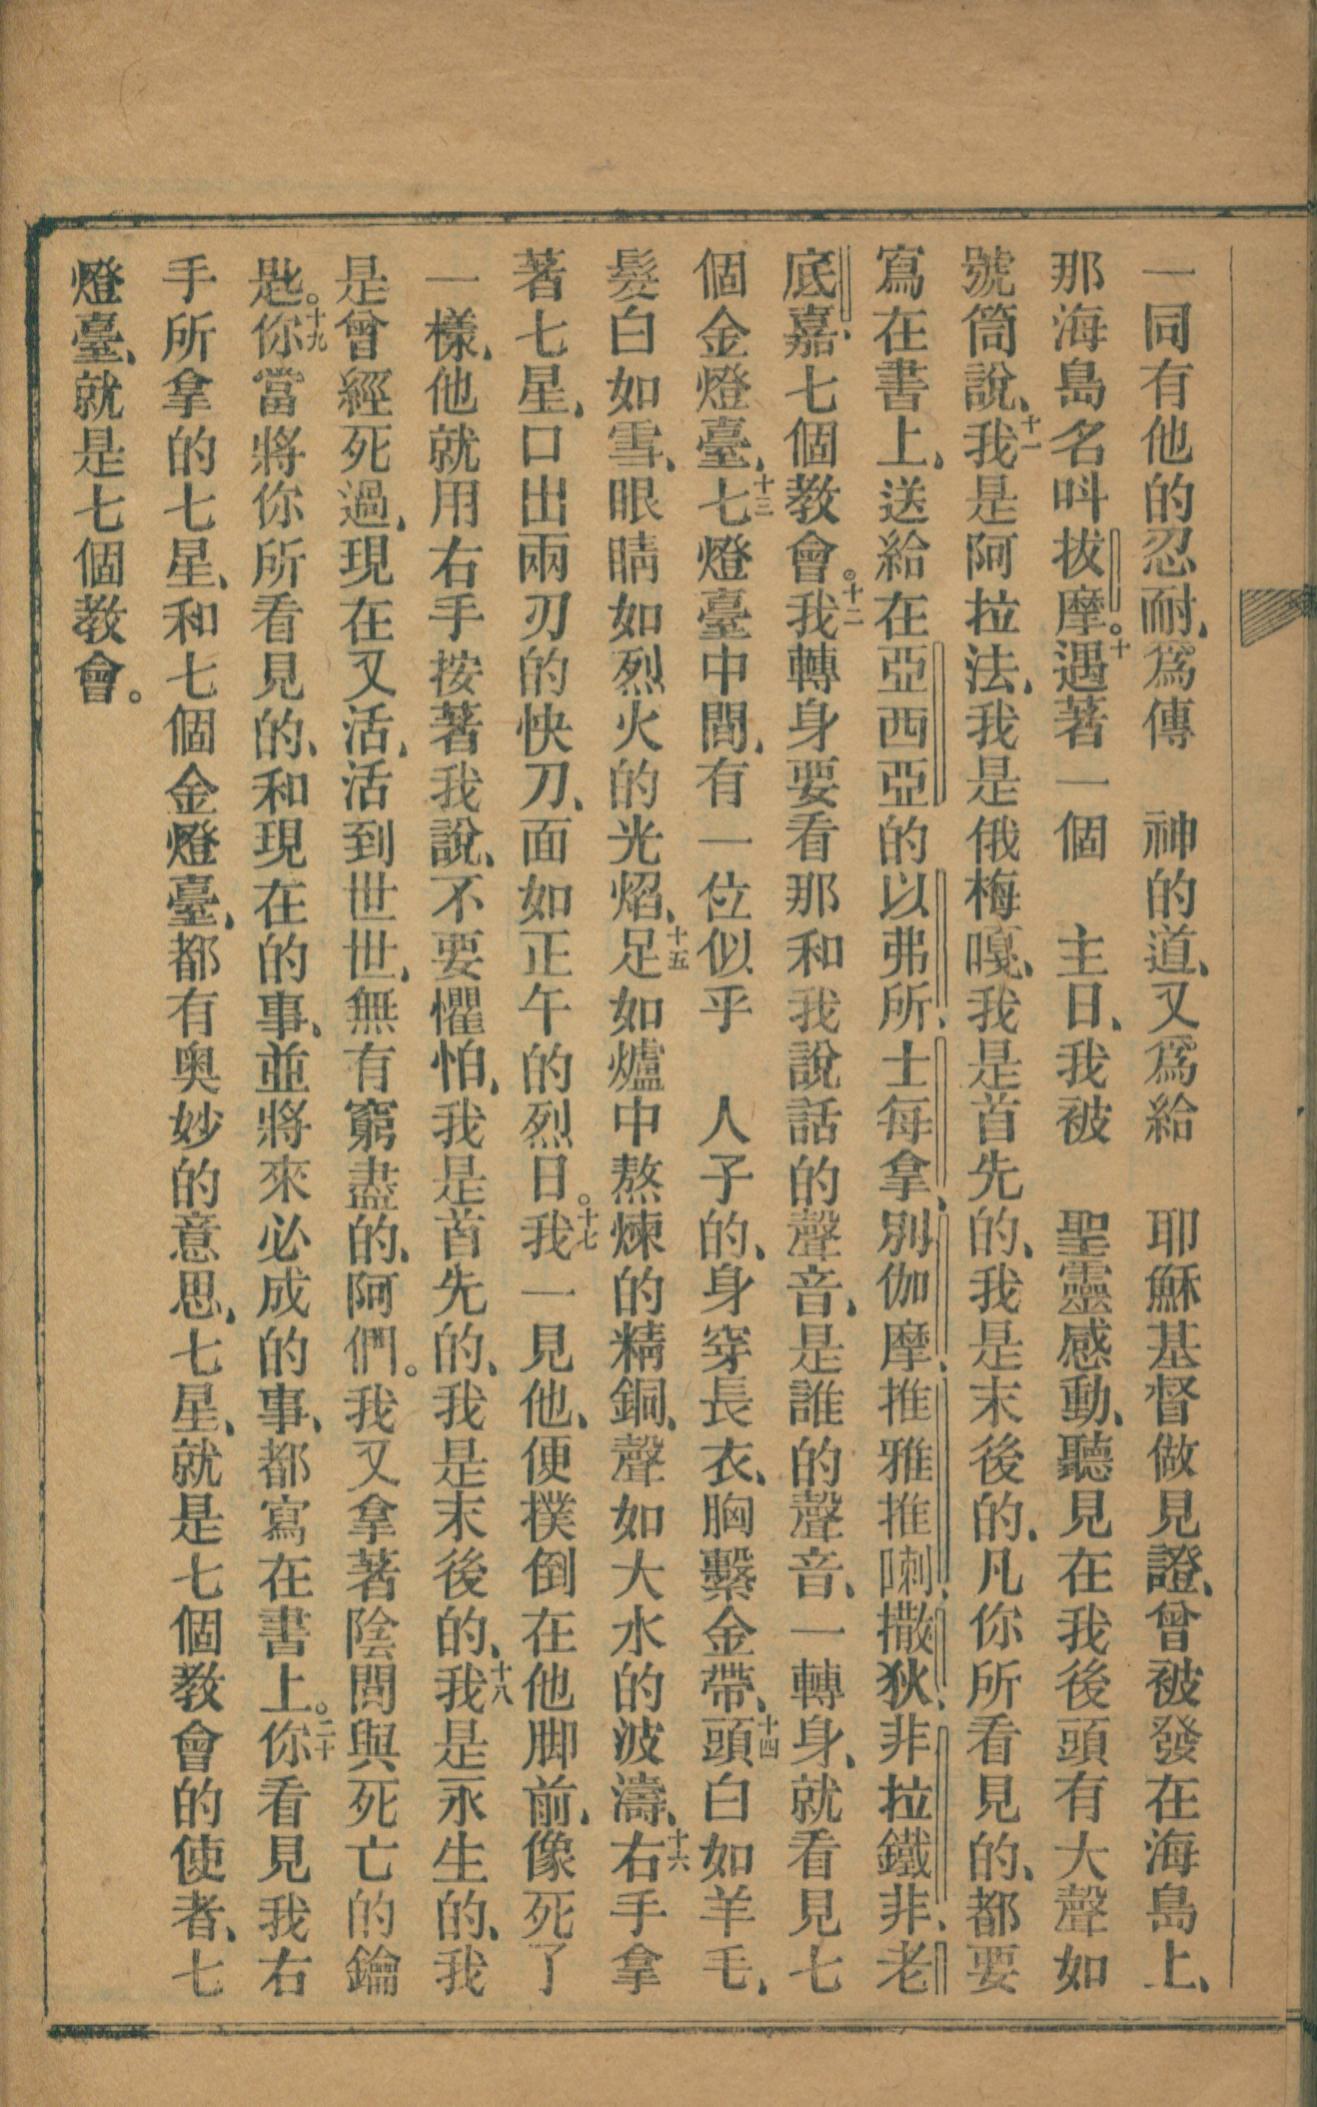 一同有他的忍耐、爲傳　神的道、又爲給　耶穌基督做見證、曾被發在海島上、
那海島名呌拔摩。十遇著一個　主日、我被　聖靈感動、聽見在我後頭有大聲如
號筒說、十一我是阿拉法、我是俄梅嘎、我是首先的、我是末後的、凡你所看見的、都要
寫在書上、送給在亞西亞的以弗所、士每拿、別伽摩、推雅推喇、撒狄、非拉鐵非、老
底嘉、七個教會。十二我轉身要看那和我說話的聲音、是誰的聲音、一轉身、就看見七
個金燈臺、十三七燈臺中間、有一位似乎　人子的、身穿長衣、胸繫金帶、十四頭白如羊毛、
髮白如雪、眼睛如烈火的光焰、十五足如爐中熬煉的精銅、聲如大水的波濤、十六右手拿
著七星、口出兩刃的快刀、面如正午的烈日。十七我一見他、便撲倒在他脚前、像死了
一樣、他就用右手按著我說、不要懼怕、我是首先的、我是末後的、十八我是永生的、我
是曾經死過、現在又活、活到世世、無有窮盡的、阿們。我又拿著陰間與死亡的鑰
匙。十九你當將你所看見的、和現在的事、並將來必成的事、都寫在書上。二十你看見我右
手所拿的七星、和七個金燈臺、都有奥妙的意思、七星、就是七個教會的使者、七
燈臺、就是七個教會。